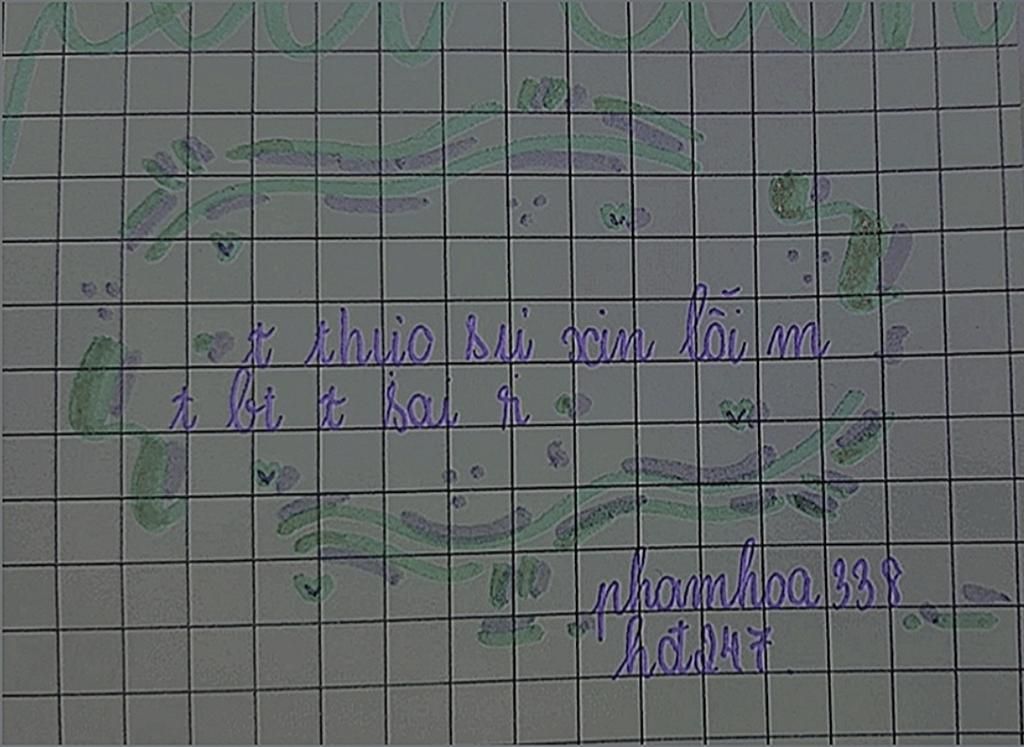 t thực sự xin lỗi m
t bt t sai r
phamhoa338
hđ247